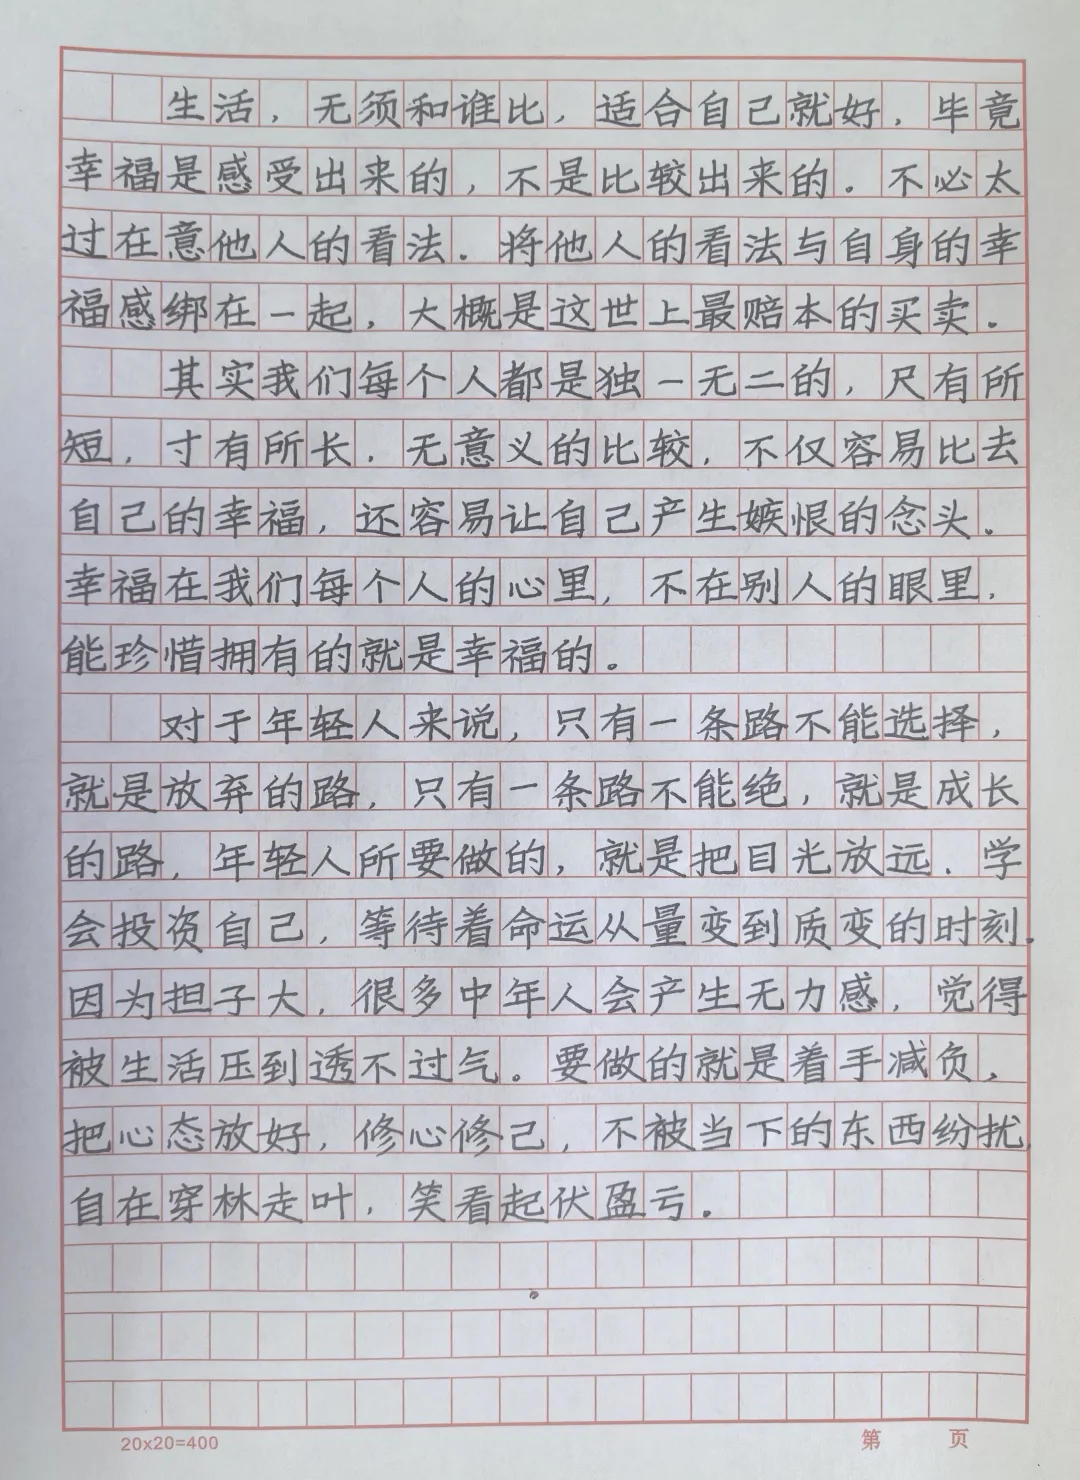 生活，无须和谁比，适合自己就好，毕竟
幸福是感受出来的，不是比较出来的．不必太
过在意他人的看法．将他人的看法与自身的幸
福感绑在一起，大概是这世上最赔本的买卖．
其实我们每个人都是独一无二的，尺有所
短，寸有所长．无意义的比较，不仅容易比去
自己的幸福，还容易让自己产生嫉恨的念头．
幸福在我们每个人的心里，不在别人的眼里．
能珍惜拥有的就是幸福的。
对于年轻人来说，只有一条路不能选择，
就是放弃的路，只有一条路不能绝，就是成长
的路，年轻人所要做的，就是把目光放远．学
会投资自己，等待着命运从量变到质变的时刻．
因为担子大，很多中年人会产生无力感，觉得
被生活压到透不过气。要做的就是着手减负，
把心态放好，修心修己，不被当下的东西纷扰，
自在穿林走叶，笑看起伏盈亏．
20x20=400
第 页